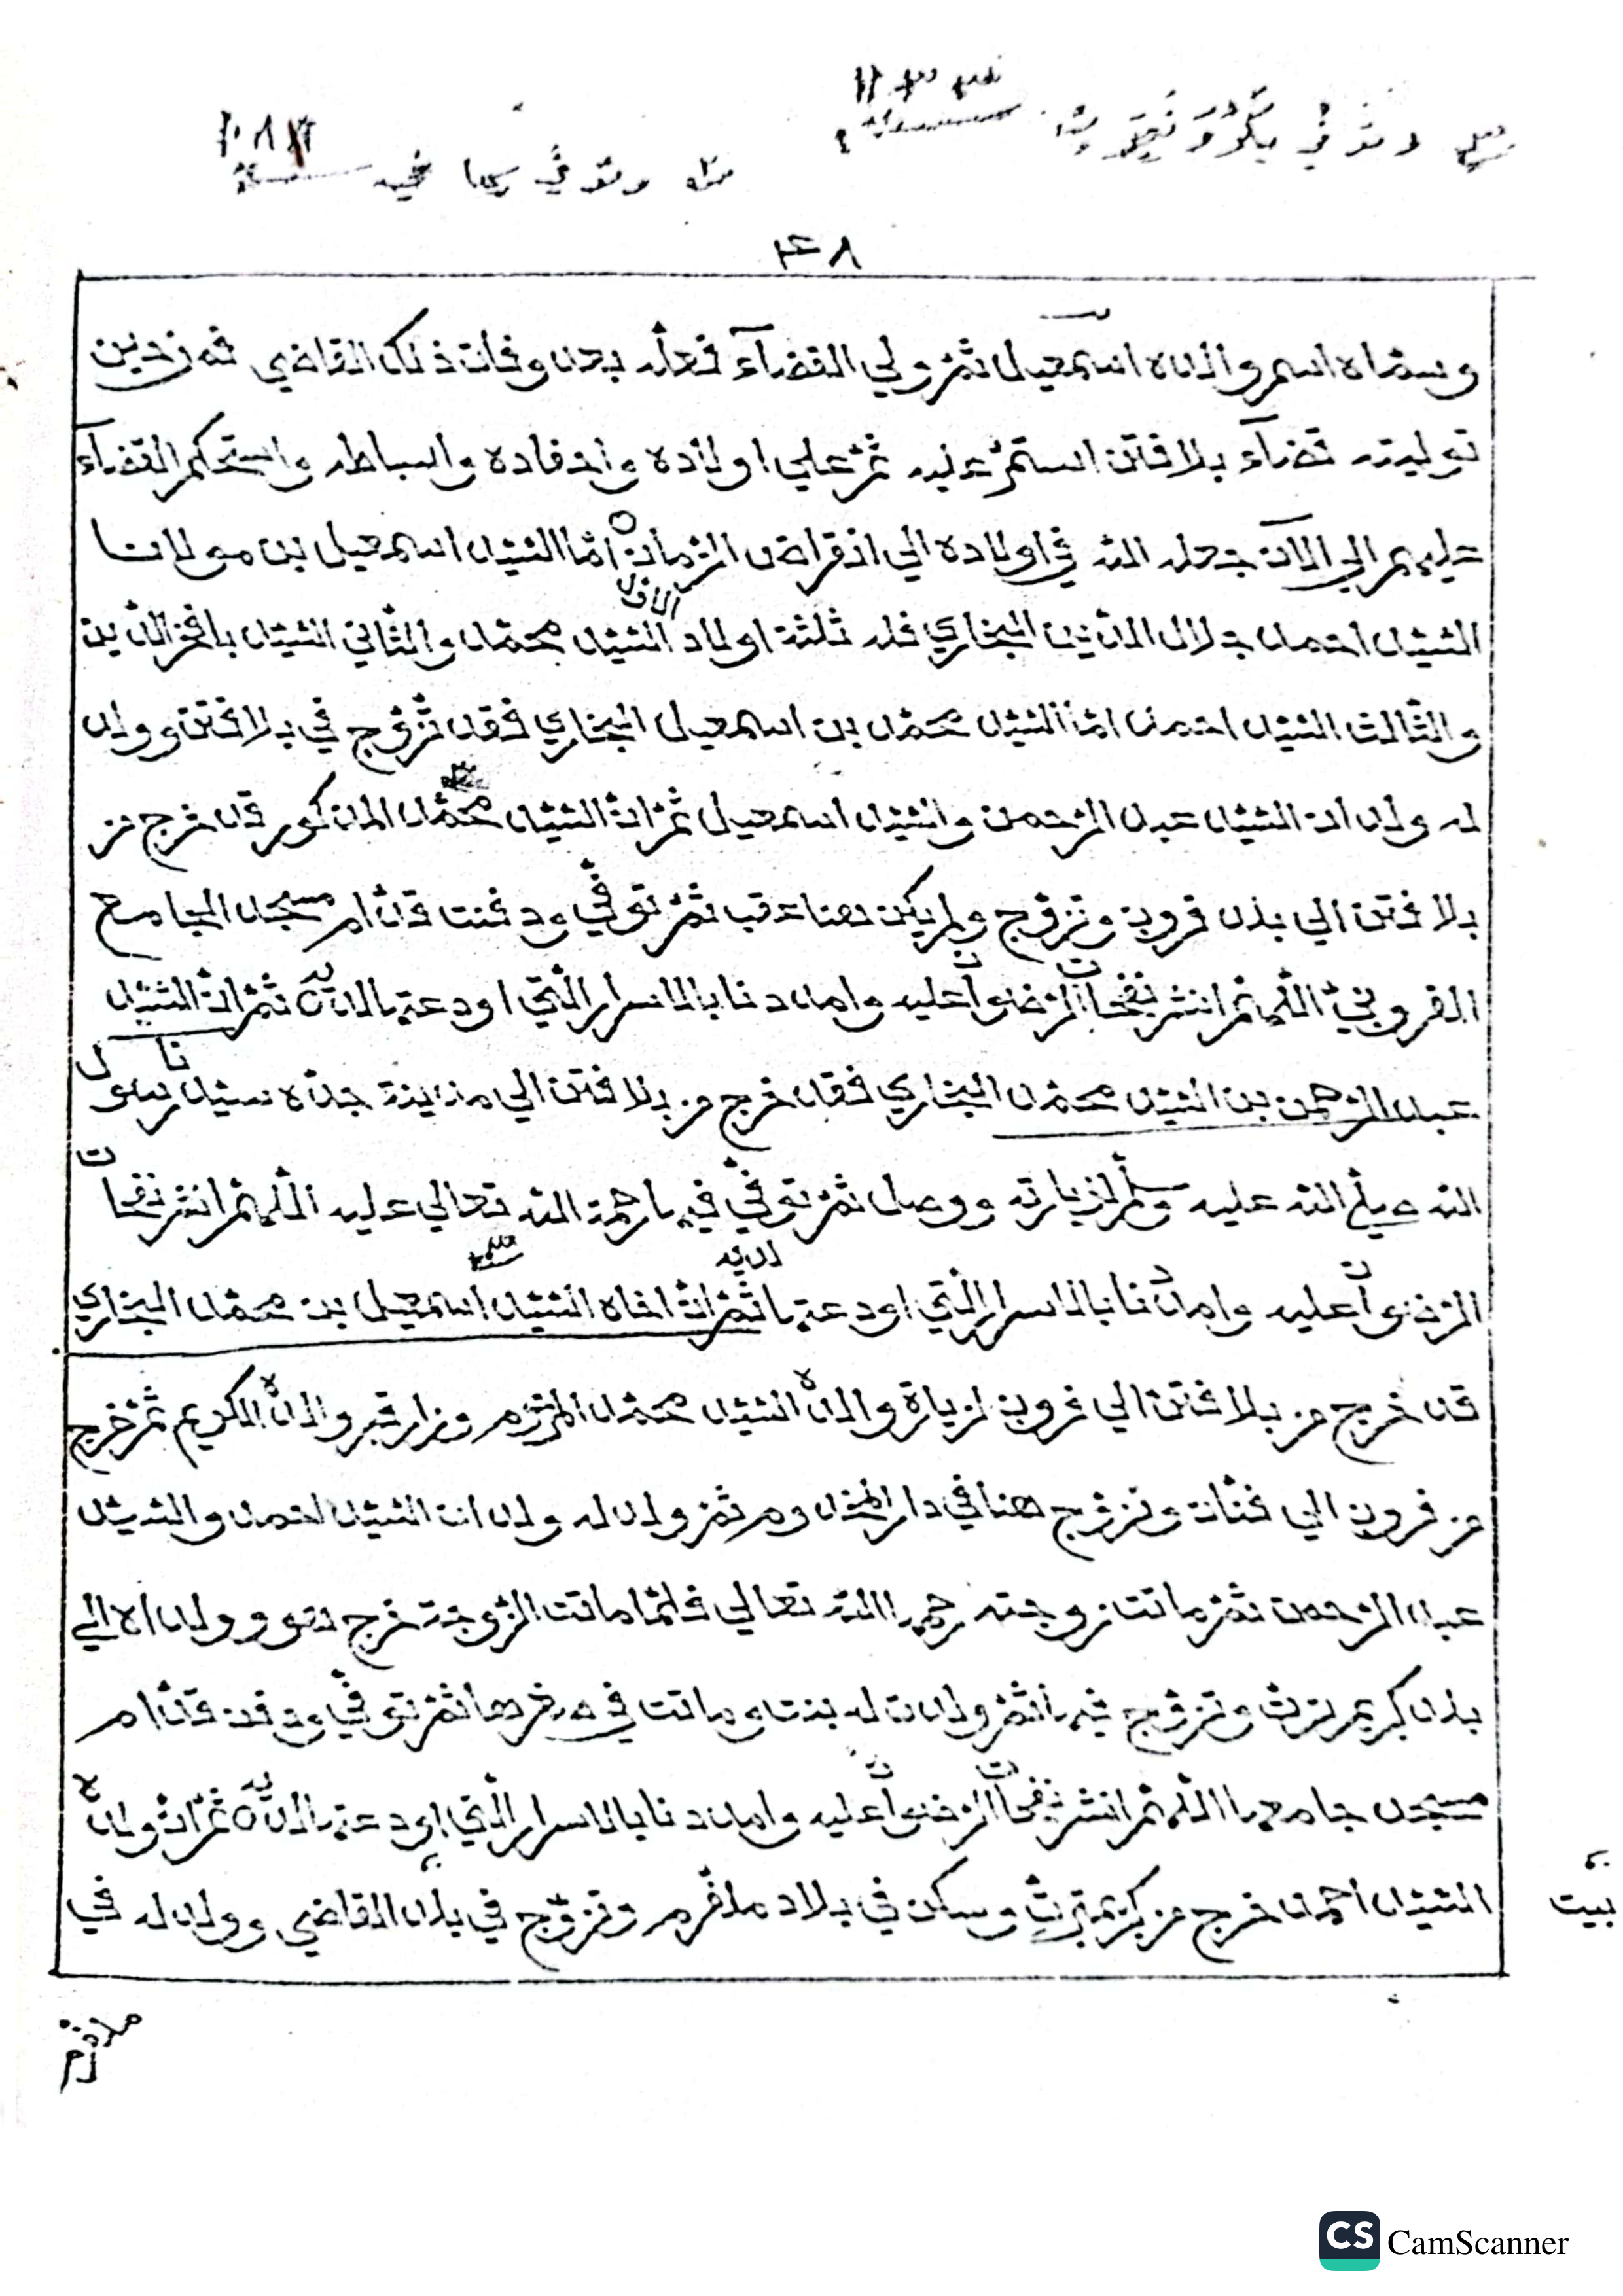 وتوفي
وتوفي
٤٨
وسماه اسم والده اسمعيل ثم ولي القضآء فعله بعد وفات ذلك القاضي فمن حين
توليته قضآء بلافتن استمر عليه ثم علي اولاده واحفاده واسباطه واستحكم القضآء
عليهم الي الآن جعله الله في اولاده الي انقراض الزمان اما السيد اسمعيل بن مولانا
الاول
السيد احمد جلال الدين البخاري فله ثلثة اولاد السيد محمد والثاني السيد بافخر الدين
والثالث السيد احمد اما السيد محمد بن اسمعيل البخاري فقد تزوج في بلافتن وولد
له ولدان السيد عبد الرحمن والسيد اسمعيل ثم ان السيد محمد المذكور قد خرج من
بلافتن الي بلد فرون وتزوج ولم يكن هنا عقب ثم توفي ودفنت قدام مسجد الجامع
الفروني اللهم انشر نفحات الرضوان عليه وامددنا بالاسرار التي اودعتها لديه ثم ان السيد
عبد الرحمن بن السيد محمد البخاري فقد خرج من بلافتن الي مدينة جده سيدنا رسول
الله صلي الله عليه وسلم لزيارته ووصل ثم توفي فيها رحمة الله تعالي عليه اللهم انشر نفحات
الرضوان عليه وامدنا بالاسرار التي اودعتها لديه ثم ان اخاه السيد اسمعيل بن محمد البخاري
قد خرج من بلافتن الي فرون لزيارة والده السيد محمد المرحوم وزار قبر والده الكريم ثم خرج
من فرون الي فنان وتزوج هنا في دار المخدوم ثم ولد له ولدان السيد احمد والسيد
عبد الرحمن ثم ماتت زوجته رحمها الله تعالي فلما ماتت الزوجة خرج هو وولداه الي
بلد كريمبرث وتزوج فيها ثم ولدت له بنت وماتت في صغرها ثم توفي ودفن قدام
مسجد جامعها اللهم انشر نفحات الرضوان عليه وامددنا بالاسرار التي اودعتها لديه ثم ان ولده
السيد احمد خرج من كريمبرث وسكن في بلاد ملافرم وتزوج في بلد القاضي وولد له في
بيت
ملافرم
CS CamScanner